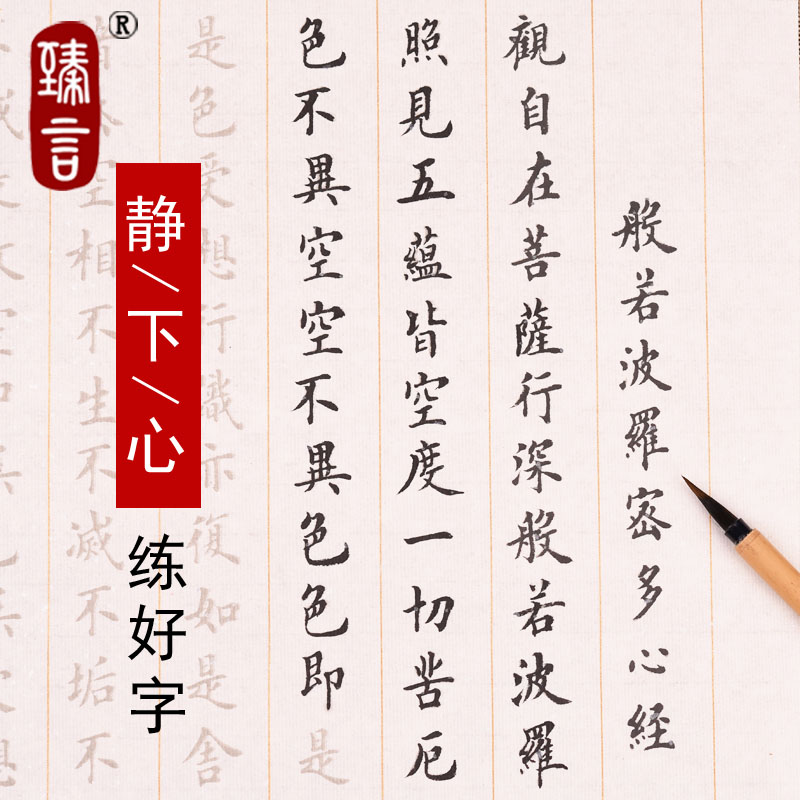 臻言®
静/下/心
练好字
般若波羅密多心經
觀自在菩薩行深般若波羅
照見五蘊皆空度一切苦厄
色不異空空不異色色即是
是色受想行識亦復如是舍
空相不生不滅不垢不